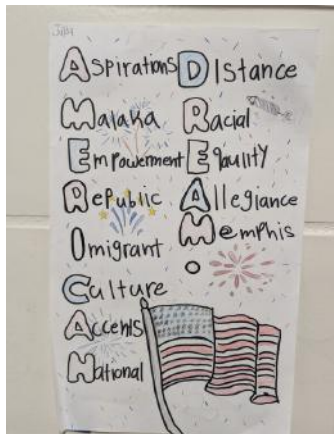 Aspirations
Malaka
Empowerment
Republic
Imigrant
Culture
Accents
National
Distance
Racial
Eqaulity
Allegiance
Memphis